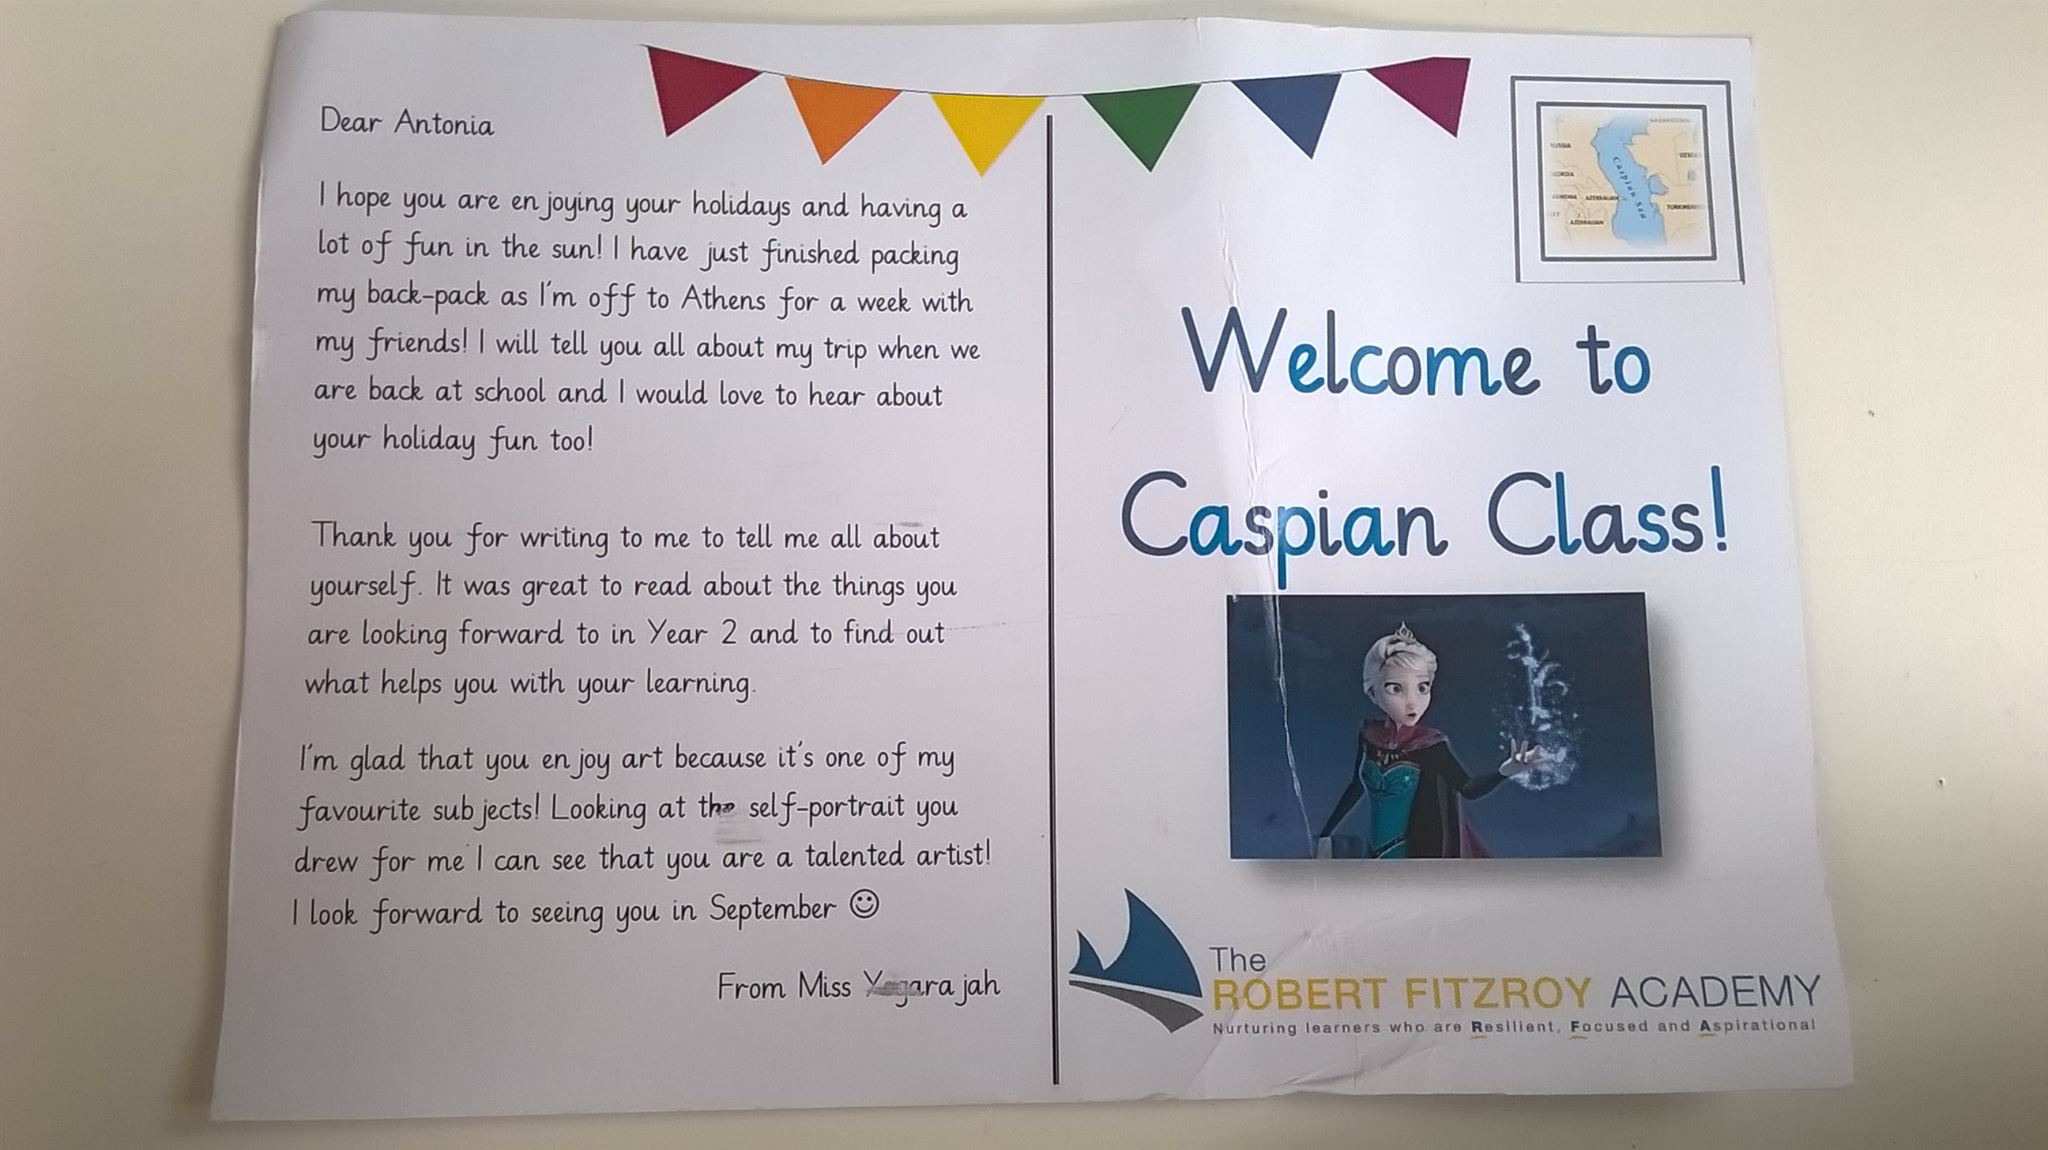 Dear Antonia
I hope you are enjoying your holidays and having a
lot of fun in the sun! I have just finished packing
my back-pack as I'm off to Athens for a week with
my friends! I will tell you all about my trip when we
are back at school and I would love to hear about
your holiday fun too!
Thank you for writing to me to tell me all about
yourself. It was great to read about the things you
are looking forward to in Year 2 and to find out
what helps you with your learning.
I'm glad that you enjoy art because it's one of my
favourite subjects! Looking at the self-portrait you
drew for me I can see that you are a talented artist!
I look forward to seeing you in September ☺
From Miss Yogarajah
KAZAKHSTAN
RUSSIA
Caspian Sea
AZERBAIJAN
AZERBAIJAN
Welcome to
Caspian Class!
The
ROBERT FITZROY ACADEMY
Nurturing learners who are Resilient, Focused and Aspirational